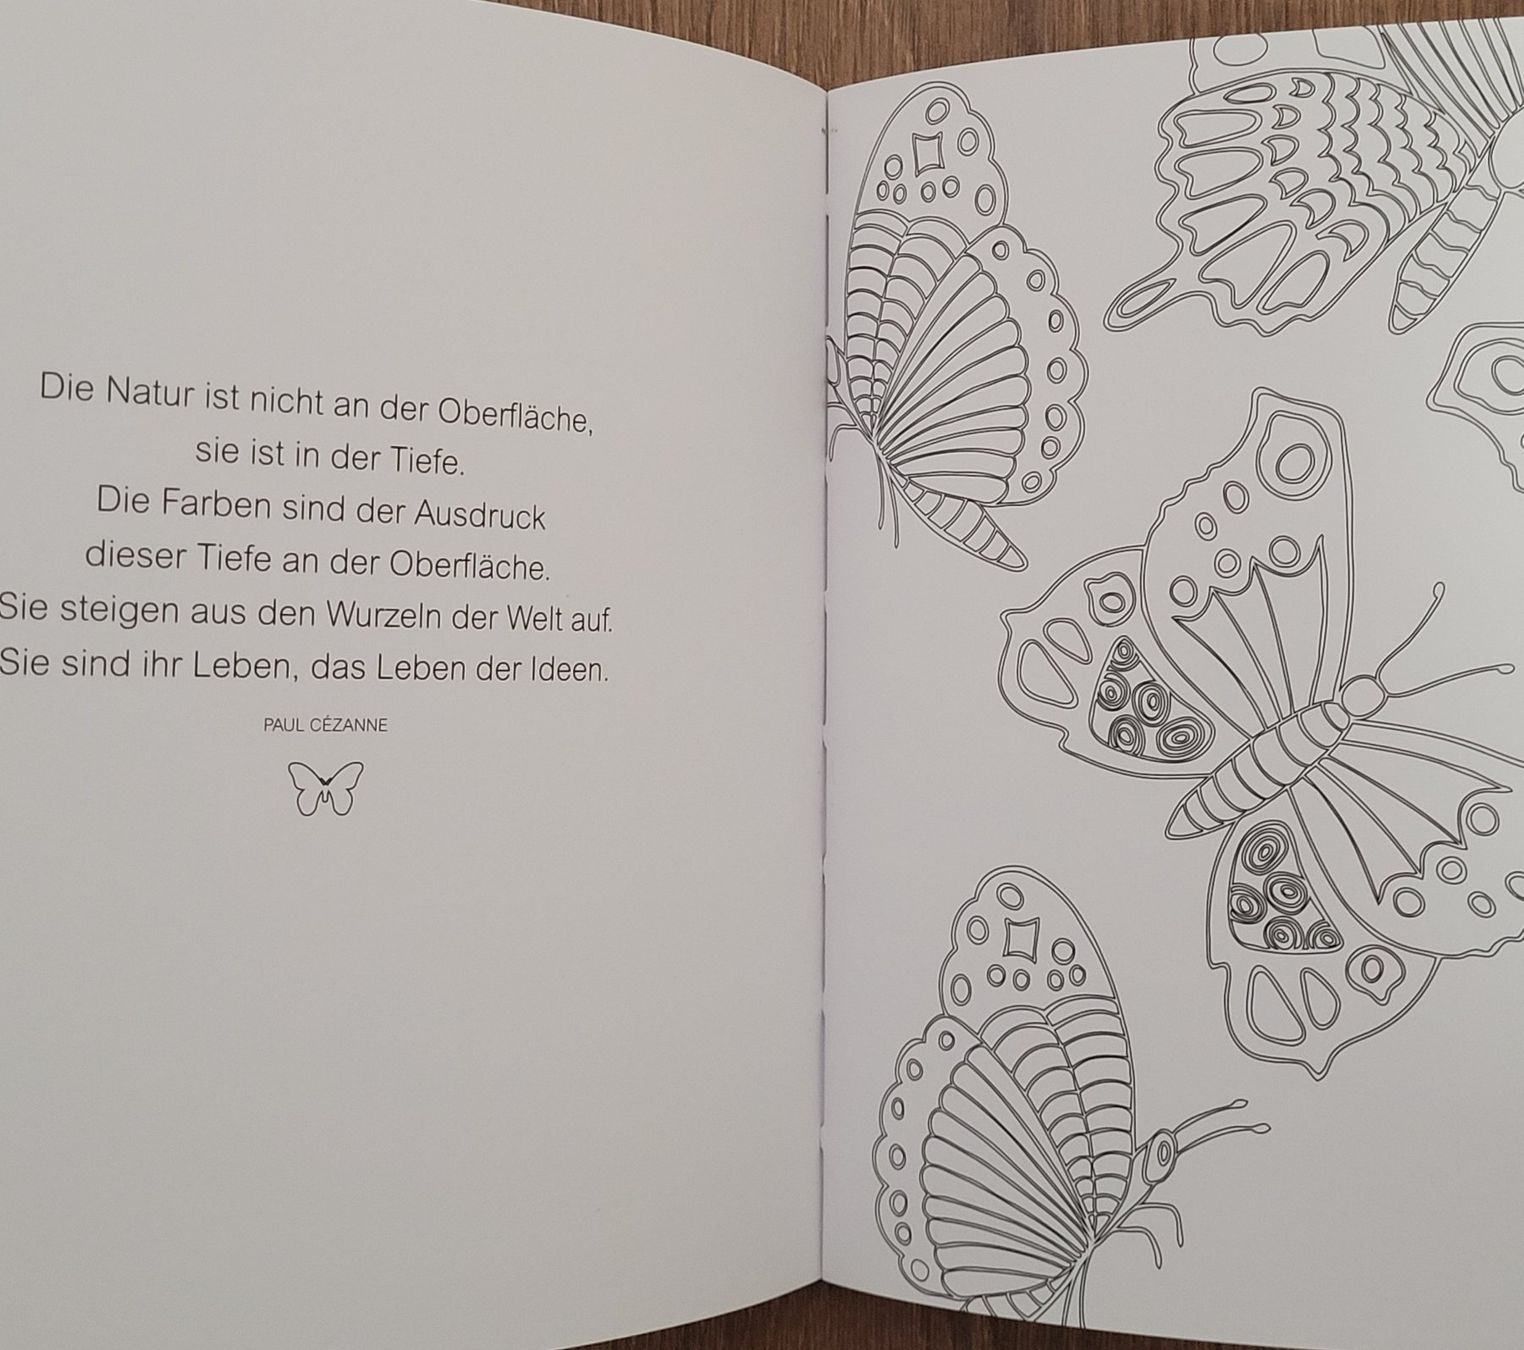 Die Natur ist nicht an der Oberfläche,
sie ist in der Tiefe.
Die Farben sind der Ausdruck
dieser Tiefe an der Oberfläche.
Sie steigen aus den Wurzeln der Welt auf.
Sie sind ihr Leben, das Leben der Ideen.
PAUL CÉZANNE